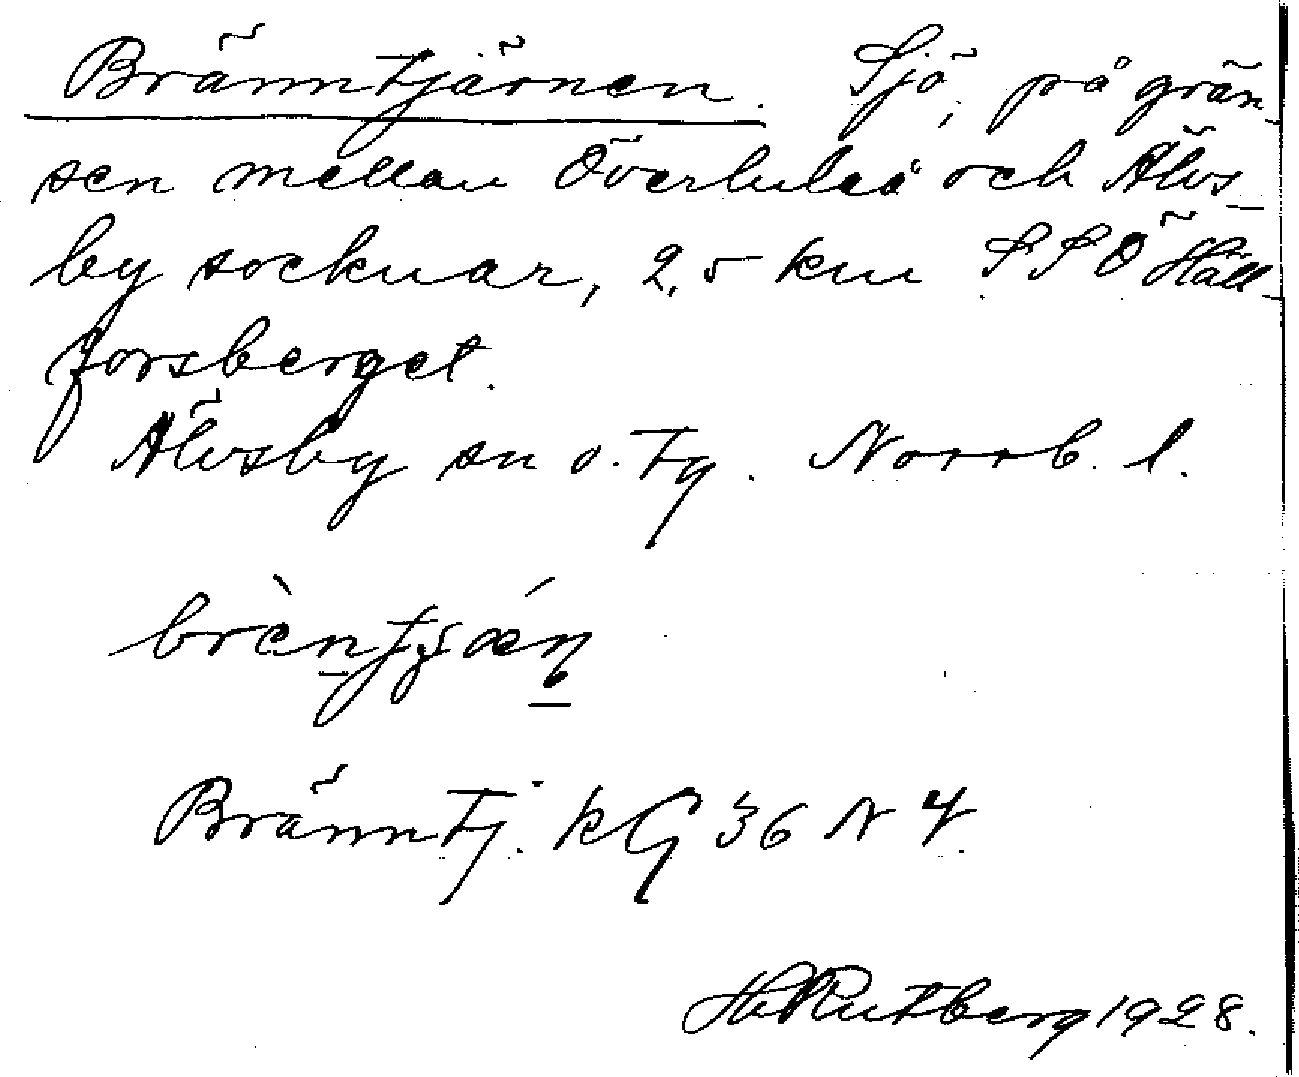 Bränntjärnen. Sjö, på grän-
sen mellan Överluleå och Älvs-
by socknar, 2,5 km SSÖ Häll-
forsberget.
Älvsby sn o. tg. Norrb. l.
Bränntj. kG 36 N 4.
H Rutberg 1928.